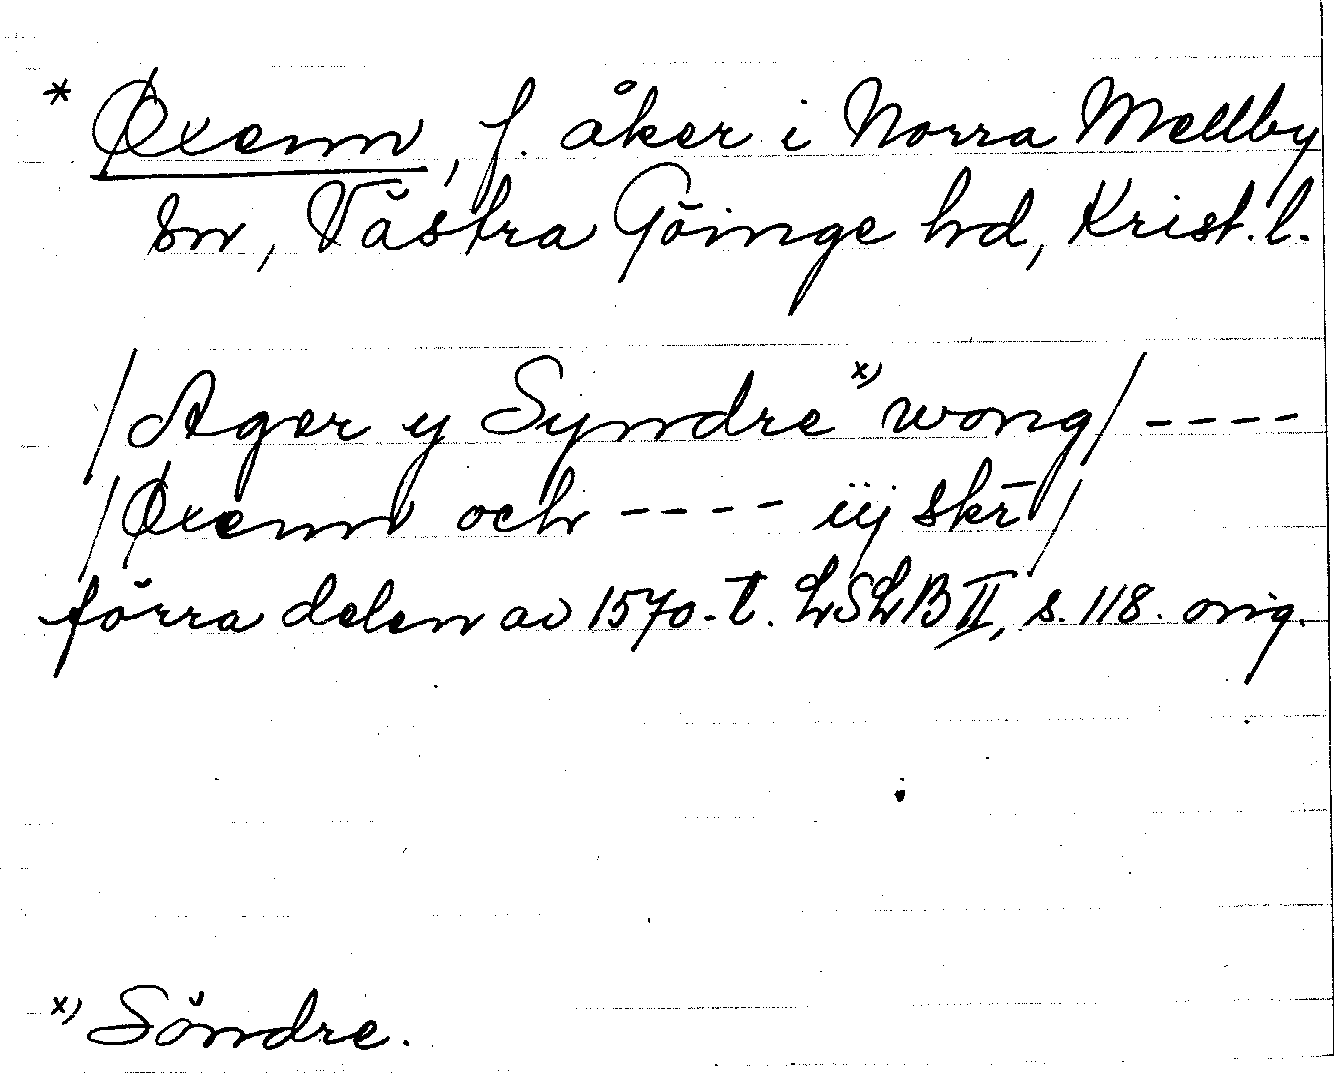 * Øxenn, f. åker i Norra Mellby
sn, Västra Göinge hd, Krist. l.
/Ager y Syndre x) wong/ ----
/Øxenn och ---- iij skr̄/
förra delen av 1570-t. LSLB II, s. 118. orig.
x) Söndre.